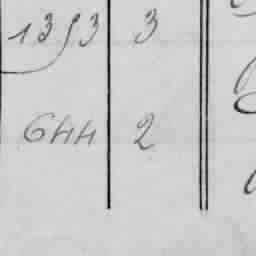 1353 3
644 2